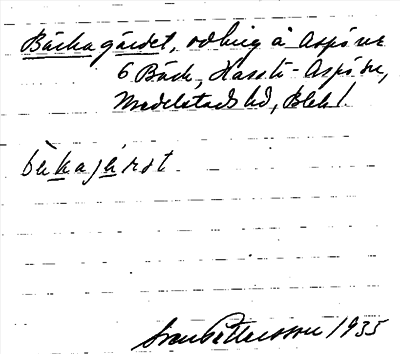 Bäckagärdet, odling å Aspö nr
6 Bäck, Hasslö-Aspö sn,
Medelstads hd, Blek l.
bɛkajæɾdt.
Sven Pettersson 1935